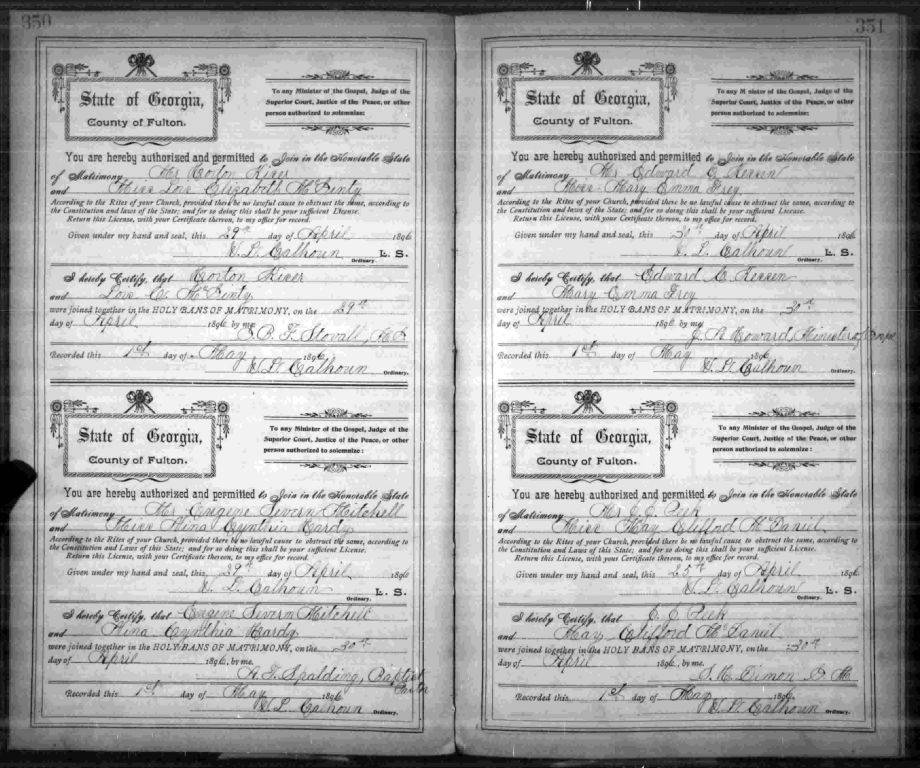 350
State of Georgia,
County of Fulton.
To any Minister of the Gospel, Judge of the
Superior Court, Justice of the Peace, or other
person authorized to solemnize:
You are hereby authorized and permitted to Join in the Honorable State
of Matrimony Mr
and Miss Lois Elizabeth McGinty
According to the Rites of your Church, provided there be no lawful cause to obstruct the same, according to
the Constitution and laws of the State; and for so doing this shall be your sufficient License.
Return this License, with your Certificate thereon, to my office for record.
Given under my hand and seal, this 29th day of April 1896
W. L. Calhoun L. S.
Ordinary.
I hereby Certify, that
and Lois E. McGinty
were joined together in the HOLY BANS OF MATRIMONY, on the 29th
day of April 1896 by me
Stovall,
Recorded this 1st day of May 1896
W. L. Calhoun
Ordinary.
State of Georgia,
County of Fulton.
To any Minister of the Gospel, Judge of the
Superior Court, Justice of the Peace, or other
person authorized to solemnize:
You are hereby authorized and permitted to Join in the Honorable State
of Matrimony Mr Mitchell
and Miss Cynthia Hardy
According to the Rites of your Church, provided there be no lawful cause to obstruct the same, according to
the Constitution and Laws of this State; and for so doing this shall be your sufficient License.
Return this License, with your Certificate thereon, to my office for record.
Given under my hand and seal, this 29th day of April 1896
W. L. Calhoun L. S.
Ordinary.
I hereby Certify, that Mitchell
and Cynthia Hardy
were joined together in the HOLY BANS OF MATRIMONY, on the 30th
day of April 1896, by me,
Spalding, Baptist
Pastor
Recorded this 1st day of May 1896
W. L. Calhoun
Ordinary.
351
State of Georgia,
County of Fulton.
To any Minister of the Gospel, Judge of the
Superior Court, Justice of the Peace, or other
person authorized to solemnize:
You are hereby authorized and permitted to Join in the Honorable State
of Matrimony Mr Edward
and Miss Mary Emma Frey
According to the Rites of your Church, provided there be no lawful cause to obstruct the same, according to
the Constitution and laws of the State; and for so doing this shall be your sufficient License.
Return this License, with your Certificate thereon, to my office for record.
Given under my hand and seal, this 30th day of April 1896
W. L. Calhoun L. S.
Ordinary.
I hereby Certify, that Edward
and Mary Emma Frey
were joined together in the HOLY BANS OF MATRIMONY, on the 30th
day of April 1896 by me
Howard, Minister of Gospel
Recorded this 1st day of May 1896
W. L. Calhoun
Ordinary.
State of Georgia,
County of Fulton.
To any Minister of the Gospel, Judge of the
Superior Court, Justice of the Peace, or other
person authorized to solemnize:
You are hereby authorized and permitted to Join in the Honorable State
of Matrimony Mr J. J. Peek
and Miss May Clifford McDaniel
According to the Rites of your Church, provided there be no lawful cause to obstruct the same, according to
the Constitution and Laws of this State; and for so doing this shall be your sufficient License.
Return this License, with your Certificate thereon, to my office for record.
Given under my hand and seal, this 25th day of April 1896
W. L. Calhoun L. S.
Ordinary.
I hereby Certify, that Peek
and May Clifford McDaniel
were joined together in the HOLY BANS OF MATRIMONY, on the 30th
day of April 1896, by me.
Recorded this 1st day of May 1896.
W. L. Calhoun
Ordinary.